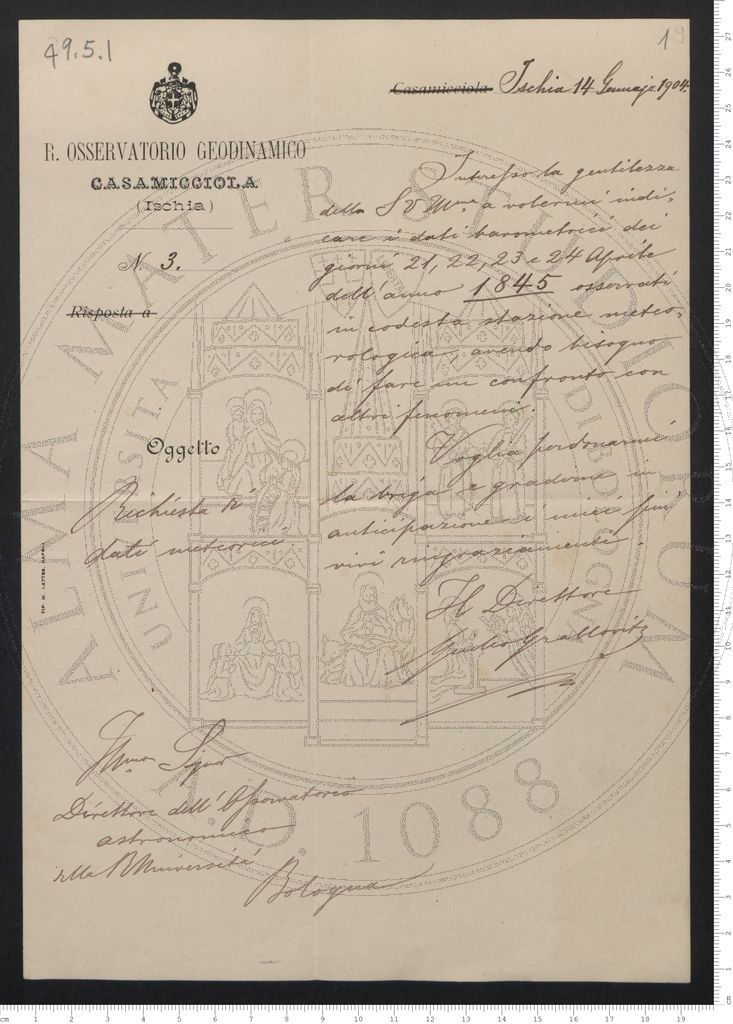 49.5.1
19
R. OSSERVATORIO GEODINAMICO
CASAMICCIOLA
(Ischia)
N. 3.
Risposta a
Oggetto
Richiesta di
dati meteorici
TIP. M. LATTES, NAPOLI
Casamicciola Ischia 14 Gennajo 1904.
Interesso la gentilezza
della S V Illma a volermi indi-
care i dati barometrici dei
giorni 21, 22, 23 e 24 Aprile
dell'anno 1845 osservati
in codesta stazione meteo-
rologica, avendo bisogno
di fare un confronto con
altri fenomeni.
Voglia perdonarmi
la briga e gradume in
anticipazione i miei più
vivi ringraziamenti
Il Direttore
Giulio Grablovitz
Illmo Signor
Direttore dell'Osservatorio
astronomico
della R Università
Bologna
ALMA MATER STUDIORUM
UNIVERSITA DI BOLOGNA
A.D. 1088